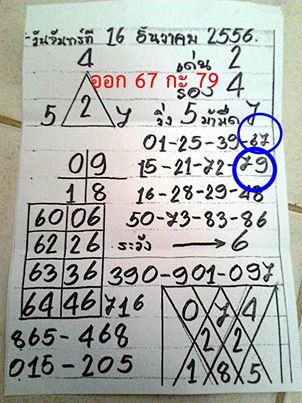 วันจันทร์ที่ 16 ธันวาคม 2556.
4 เด่น 2
ออก 67 กะ 79
รอง 4
5 2 7 วิ่ง 5 ม้ามืด 7
01-25-39-67
09 15-21-72-79
18 16-28-29-48
60 06 50-73-83-86
62 26 ระวัง → 6
63 36 390-901-097
64 46 716
0 7 4
865-468 2 2
015-205 1 8 5